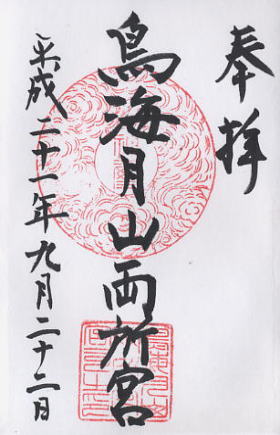 奉拝
鳥海月山両所宮
平成二十一年九月二十二日